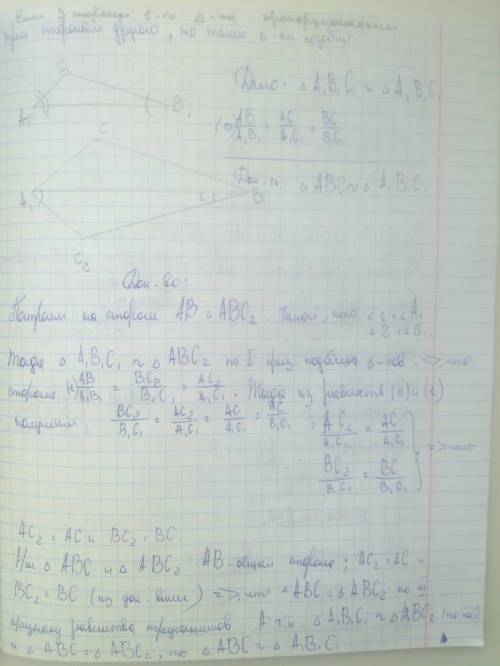 Если 3 стороны 1-го Δ-ка пропорциональны
трём сторонам другого, то такие Δ-ки подобны.
C₁
A₁
B₁
Дано: Δ A₁B₁C₁ и Δ A₁B₁C₁
(0) AB/A₁B₁ = AC/A₁C₁ = BC/B₁C₁
C
A₁
B
C₂
Док-ть: Δ ABC ~ Δ A₁B₁C₁
Док-во:
Построим на стороне AB Δ ABC₂. Такой, что ∠1=∠A₁
∠2=∠B₁
Тогда Δ A₁B₁C₁ ~ Δ ABC₂ по I приз. подобия Δ-ков. => что
стороны (1) AB/A₁B₁ = BC₂/B₁C₁ = AC₂/A₁C₁. Тогда из равенств (0) и (1)
получим BC₂/B₁C₁ = AC₂/A₁C₁ = AC/A₁C₁ = BC/B₁C₁; AC₂/A₁C₁ = AC/A₁C₁
BC₂/B₁C₁ = BC/B₁C₁ } => что
AC₂ = AC и BC₂ = BC.
Δ ABC и Δ ABC₂ AB-общая сторона; AC₂=AC и
BC₂ = BC (из док. выше) => что Δ ABC = Δ ABC₂ по III
признаку равенства треугольников. А т.к. Δ A₁B₁C₁ ~ Δ ABC₂
и Δ ABC = Δ ABC₂, то Δ ABC ~ Δ A₁B₁C₁